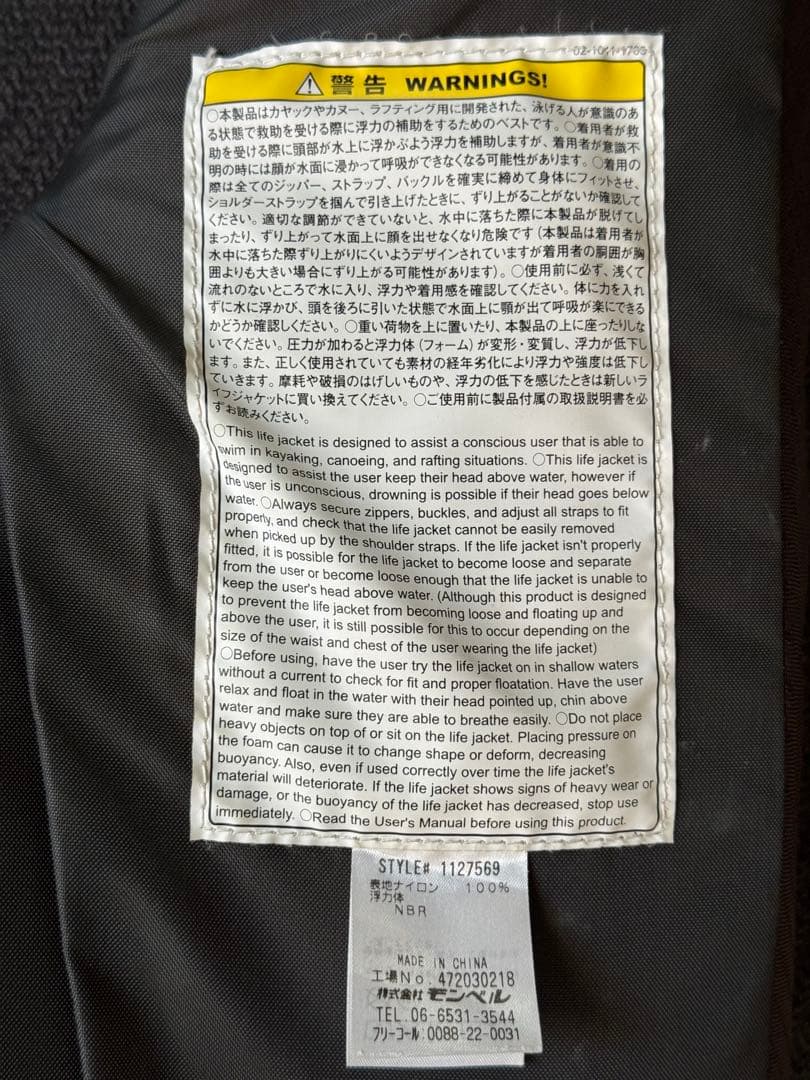 02-1011-1785
警告 WARNINGS!
○本製品はカヤックやカヌー、ラフティング用に開発された、泳げる人が意識のあ
る状態で救助を受ける際に浮力の補助をするためのベストです。○着用者が救
助を受ける際に頭部が水上に浮かぶよう浮力を補助しますが、着用者が意識不
明の時には顔が水面に浸かって呼吸ができなくなる可能性があります。○着用の
際は全てのジッパー、ストラップ、バックルを確実に締めて身体にフィットさせ、
ショルダーストラップを掴んで引き上げたときに、ずり上がることがないか確認して
ください。適切な調節ができていないと、水中に落ちた際に本製品が脱げてし
まったり、ずり上がって水面上に顔を出せなくなり危険です（本製品は着用者が
水中に落ちた際ずり上がりにくいようデザインされていますが着用者の胴囲が胸
囲よりも大きい場合にずり上がる可能性があります）。○使用前に必ず、浅くて
流れのないところで水に入り、浮力や着用感を確認してください。体に力を入れ
ずに水に浮かび、頭を後ろに引いた状態で水面上に顎が出て呼吸が楽にできる
かどうか確認してください。○重い荷物を上に置いたり、本製品の上に座ったりしな
いでください。圧力が加わると浮力体（フォーム）が変形・変質し、浮力が低下し
ます。また、正しく使用されていても素材の経年劣化により浮力や強度は低下し
ていきます。摩耗や破損のはげしいものや、浮力の低下を感じたときは新しいラ
イフジャケットに買い換えてください。○ご使用前に製品付属の取扱説明書を必
ずお読みください。
○This life jacket is designed to assist a conscious user that is able to
swim in kayaking, canoeing, and rafting situations. ○This life jacket is
designed to assist the user keep their head above water, however if
the user is unconscious, drowning is possible if their head goes below
water. ○Always secure zippers, buckles, and adjust all straps to fit
properly, and check that the life jacket cannot be easily removed
when picked up by the shoulder straps. If the life jacket isn't properly
fitted, it is possible for the life jacket to become loose and separate
from the user or become loose enough that the life jacket is unable to
keep the user's head above water. (Although this product is designed
to prevent the life jacket from becoming loose and floating up and
above the user, it is still possible for this to occur depending on the
size of the waist and chest of the user wearing the life jacket)
○Before using, have the user try the life jacket on in shallow waters
without a current to check for fit and proper floatation. Have the user
relax and float in the water with their head pointed up, chin above
water and make sure they are able to breathe easily. ○Do not place
heavy objects on top of or sit on the life jacket. Placing pressure on
the foam can cause it to change shape or deform, decreasing
buoyancy. Also, even if used correctly over time the life jacket's
material will deteriorate. If the life jacket shows signs of heavy wear or
damage, or the buoyancy of the life jacket has decreased, stop use
immediately. ○Read the User's Manual before using this product.
STYLE# 1127569
表地ナイロン 100%
浮力体
NBR
MADE IN CHINA
工場No. 472030218
株式会社 モンベル
TEL.06-6531-3544
フリーコール:0088-22-0031